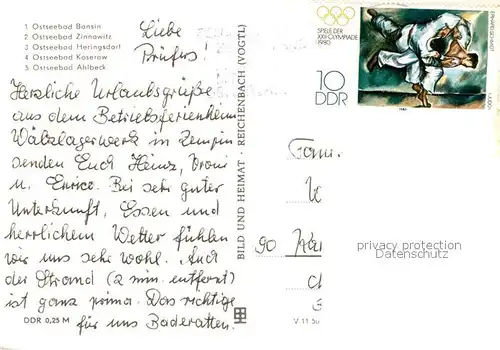 1 Ostseebad Bansin
2 Ostseebad Zinnowitz
3 Ostseebad Heringsdorf
4 Ostseebad Koserow
5 Ostseebad Ahlbeck
Liebe
Prüfers!
Herzliche Urlaubsgrüße
aus dem Betriebsferienheim
Wälzlagerwerk in Zempin
senden Euch Heinz, Vroni
u. Enrico. Bei sehr guter
Unterkunft, Essen und
herrlichem Wetter fühlen
wir uns sehr wohl. Auch
der Strand (2 min. entfernt)
ist ganz prima. Das richtige
für uns Baderatten.
DDR 0,25 M
BILD UND HEIMAT · REICHENBACH (VOGTL)
SPIELE DER
XXII. OLYMPIADE
1980
10
DDR
1980
Fam.
90
privacy protection
Datenschutz
V 11 50